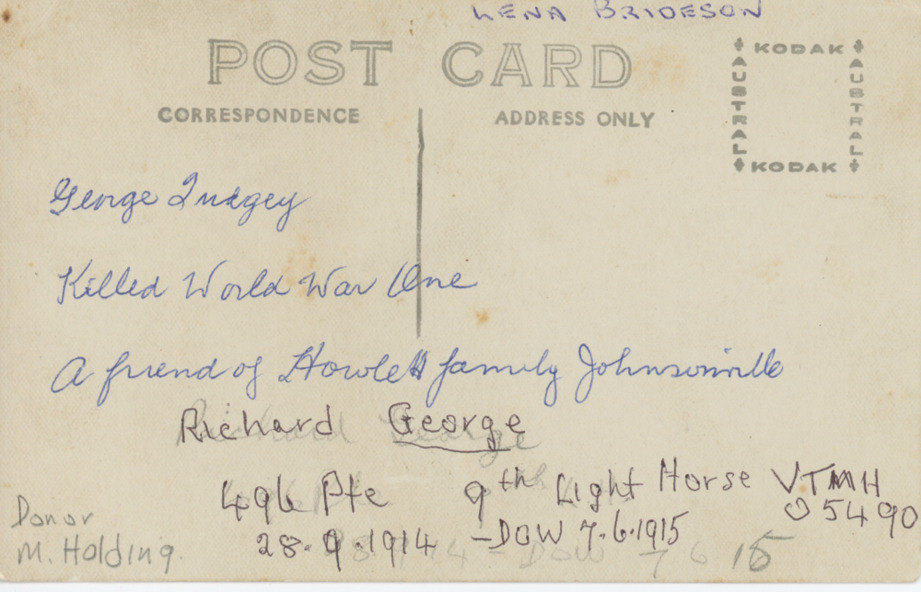 LENA BRIDESON
POST CARD
CORRESPONDENCE
ADDRESS ONLY
KODAK
AUSTRAL
AUSTRAL
KODAK
George Tudgey
Killed World War One
A friend of Howlett family Johnsonville
Richard George
496 Pte 9th Light Horse VTMH
05490
28.9.1914 - DOW 7.6.1915
15
Donor
M. Holding